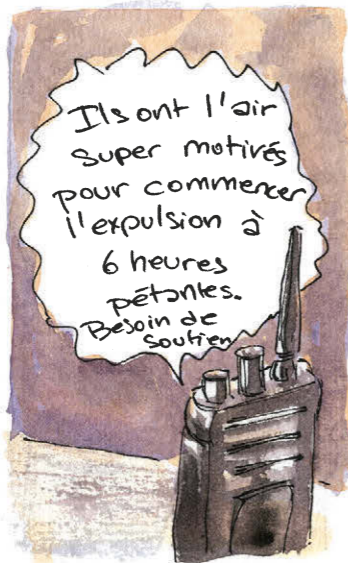 Ils ont l'air
super motivés
pour commencer
l'expulsion à
6 heures
pétantes.
Besoin de
soutien